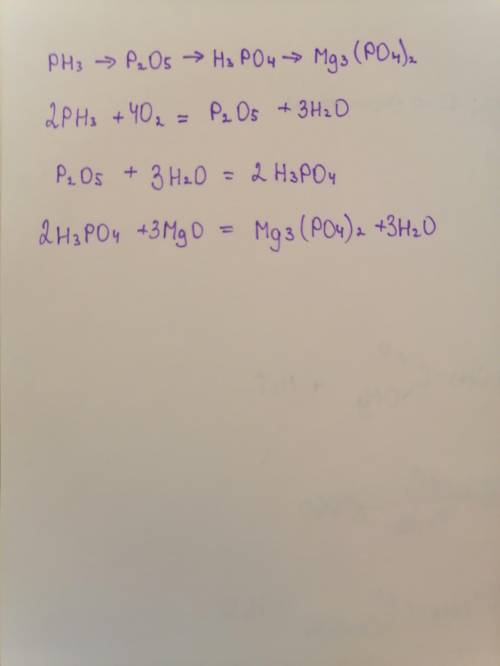 PH3 → P2O5 → H3PO4 → Mg3(PO4)2
2PH3 + 4O2 = P2O5 + 3H2O
P2O5 + 3H2O = 2H3PO4
2H3PO4 + 3MgO = Mg3(PO4)2 + 3H2O